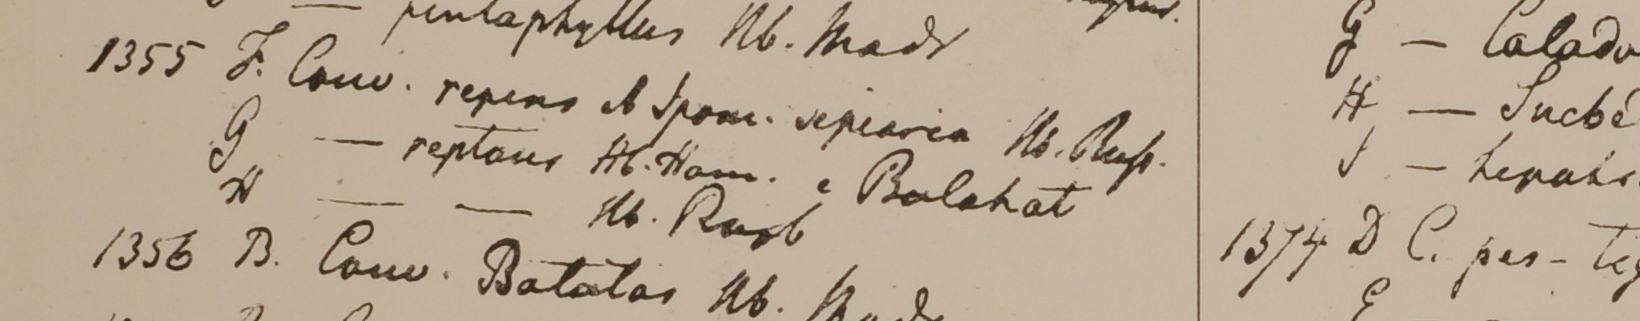 — pentaphyllus Hb. Madr
1355 F. Conv. repens et Ipom. sepiaria Hb. Russ.
G — reptans Hb. Ham. e Balahat
H — — Hb. Roxb
1356 B. Conv. Batatas Hb. Madr
G — Calado
H — Sucbé
I —
1374 D C. pes-tig
E